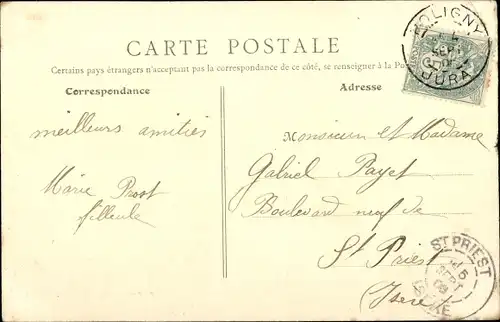 CARTE POSTALE
Certains pays étrangers n'acceptant pas la correspondance de ce côté, se renseigner à la Pos
Correspondance
Adresse
meilleurs amitiés
Marie Prost
filleule
Monsieur et Madame
Gabriel Payet
Boulevard neuf de
St Priest
Isère
POLIGNY
SEPT
JURA
ST PRIEST
5
SEPT
08
ISERE